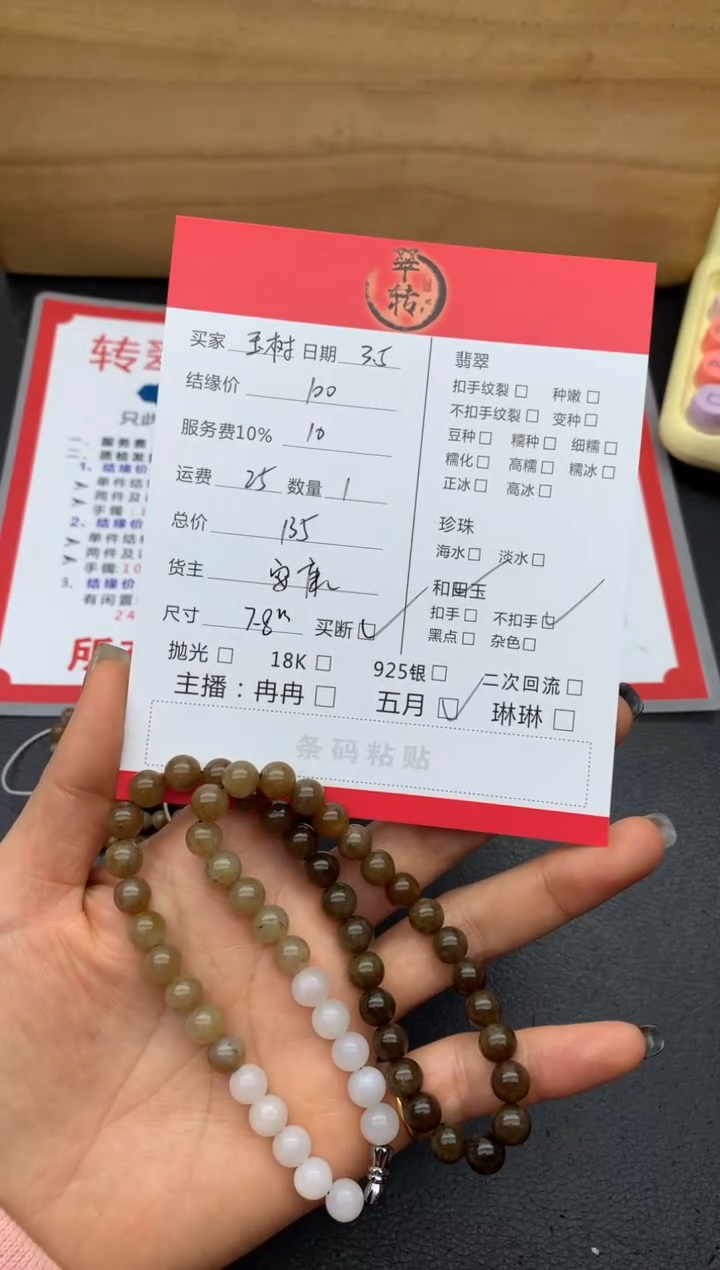 翠转
买家 玉树 日期 3.5
结缘价 100
服务费10% 10
运费 25 数量 1
总价 135
货主 安康
尺寸 7-8m 买断
抛光 18K 925银 二次回流
主播：冉冉 五月 琳琳
条码粘贴
翡翠
扣手纹裂 种嫩
不扣手纹裂 变种
豆种 糯种 细糯
糯化 高糯 糯冰
正冰 高冰
珍珠
海水 淡水
和田玉
扣手 不扣手
黑点 杂色
转翠
只此
一、服务费
二、质检发
1、结缘价
单件结
两件及
手镯:1
2、结缘价
单件结
两件及
手镯:10
3、结缘价
有闲置
24
所有